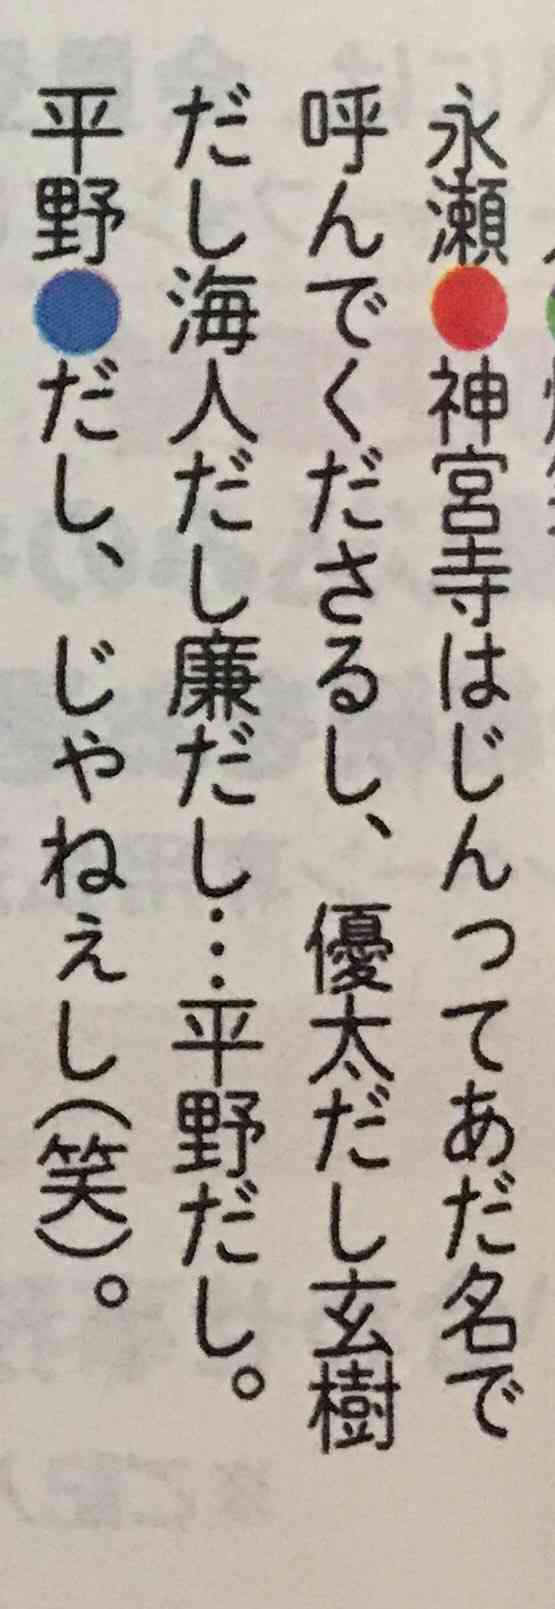 永瀬●神宮寺はじんってあだ名で
呼んでくださるし、優太だし玄樹
だし海人だし廉だし…平野だし。
平野●だし、じゃねぇし(笑)。